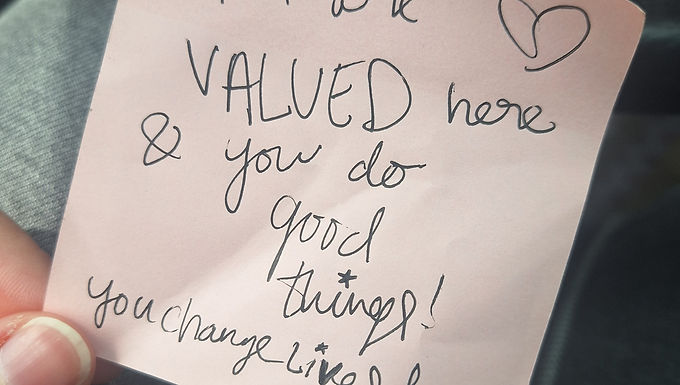 VALUED here
& you do
good
things!
you change Lives!